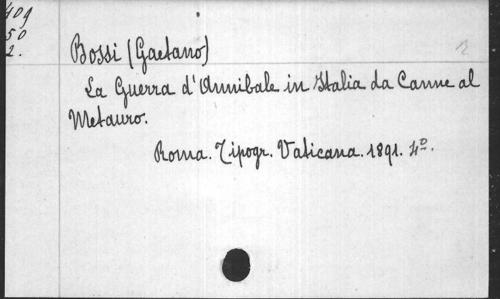 409
50
2.
Bossi (Gaetano)
La Guerra d'Annibale in Italia da Canne al
Metauro.
Roma. Tipogr. Vaticana. 1891. 4º.